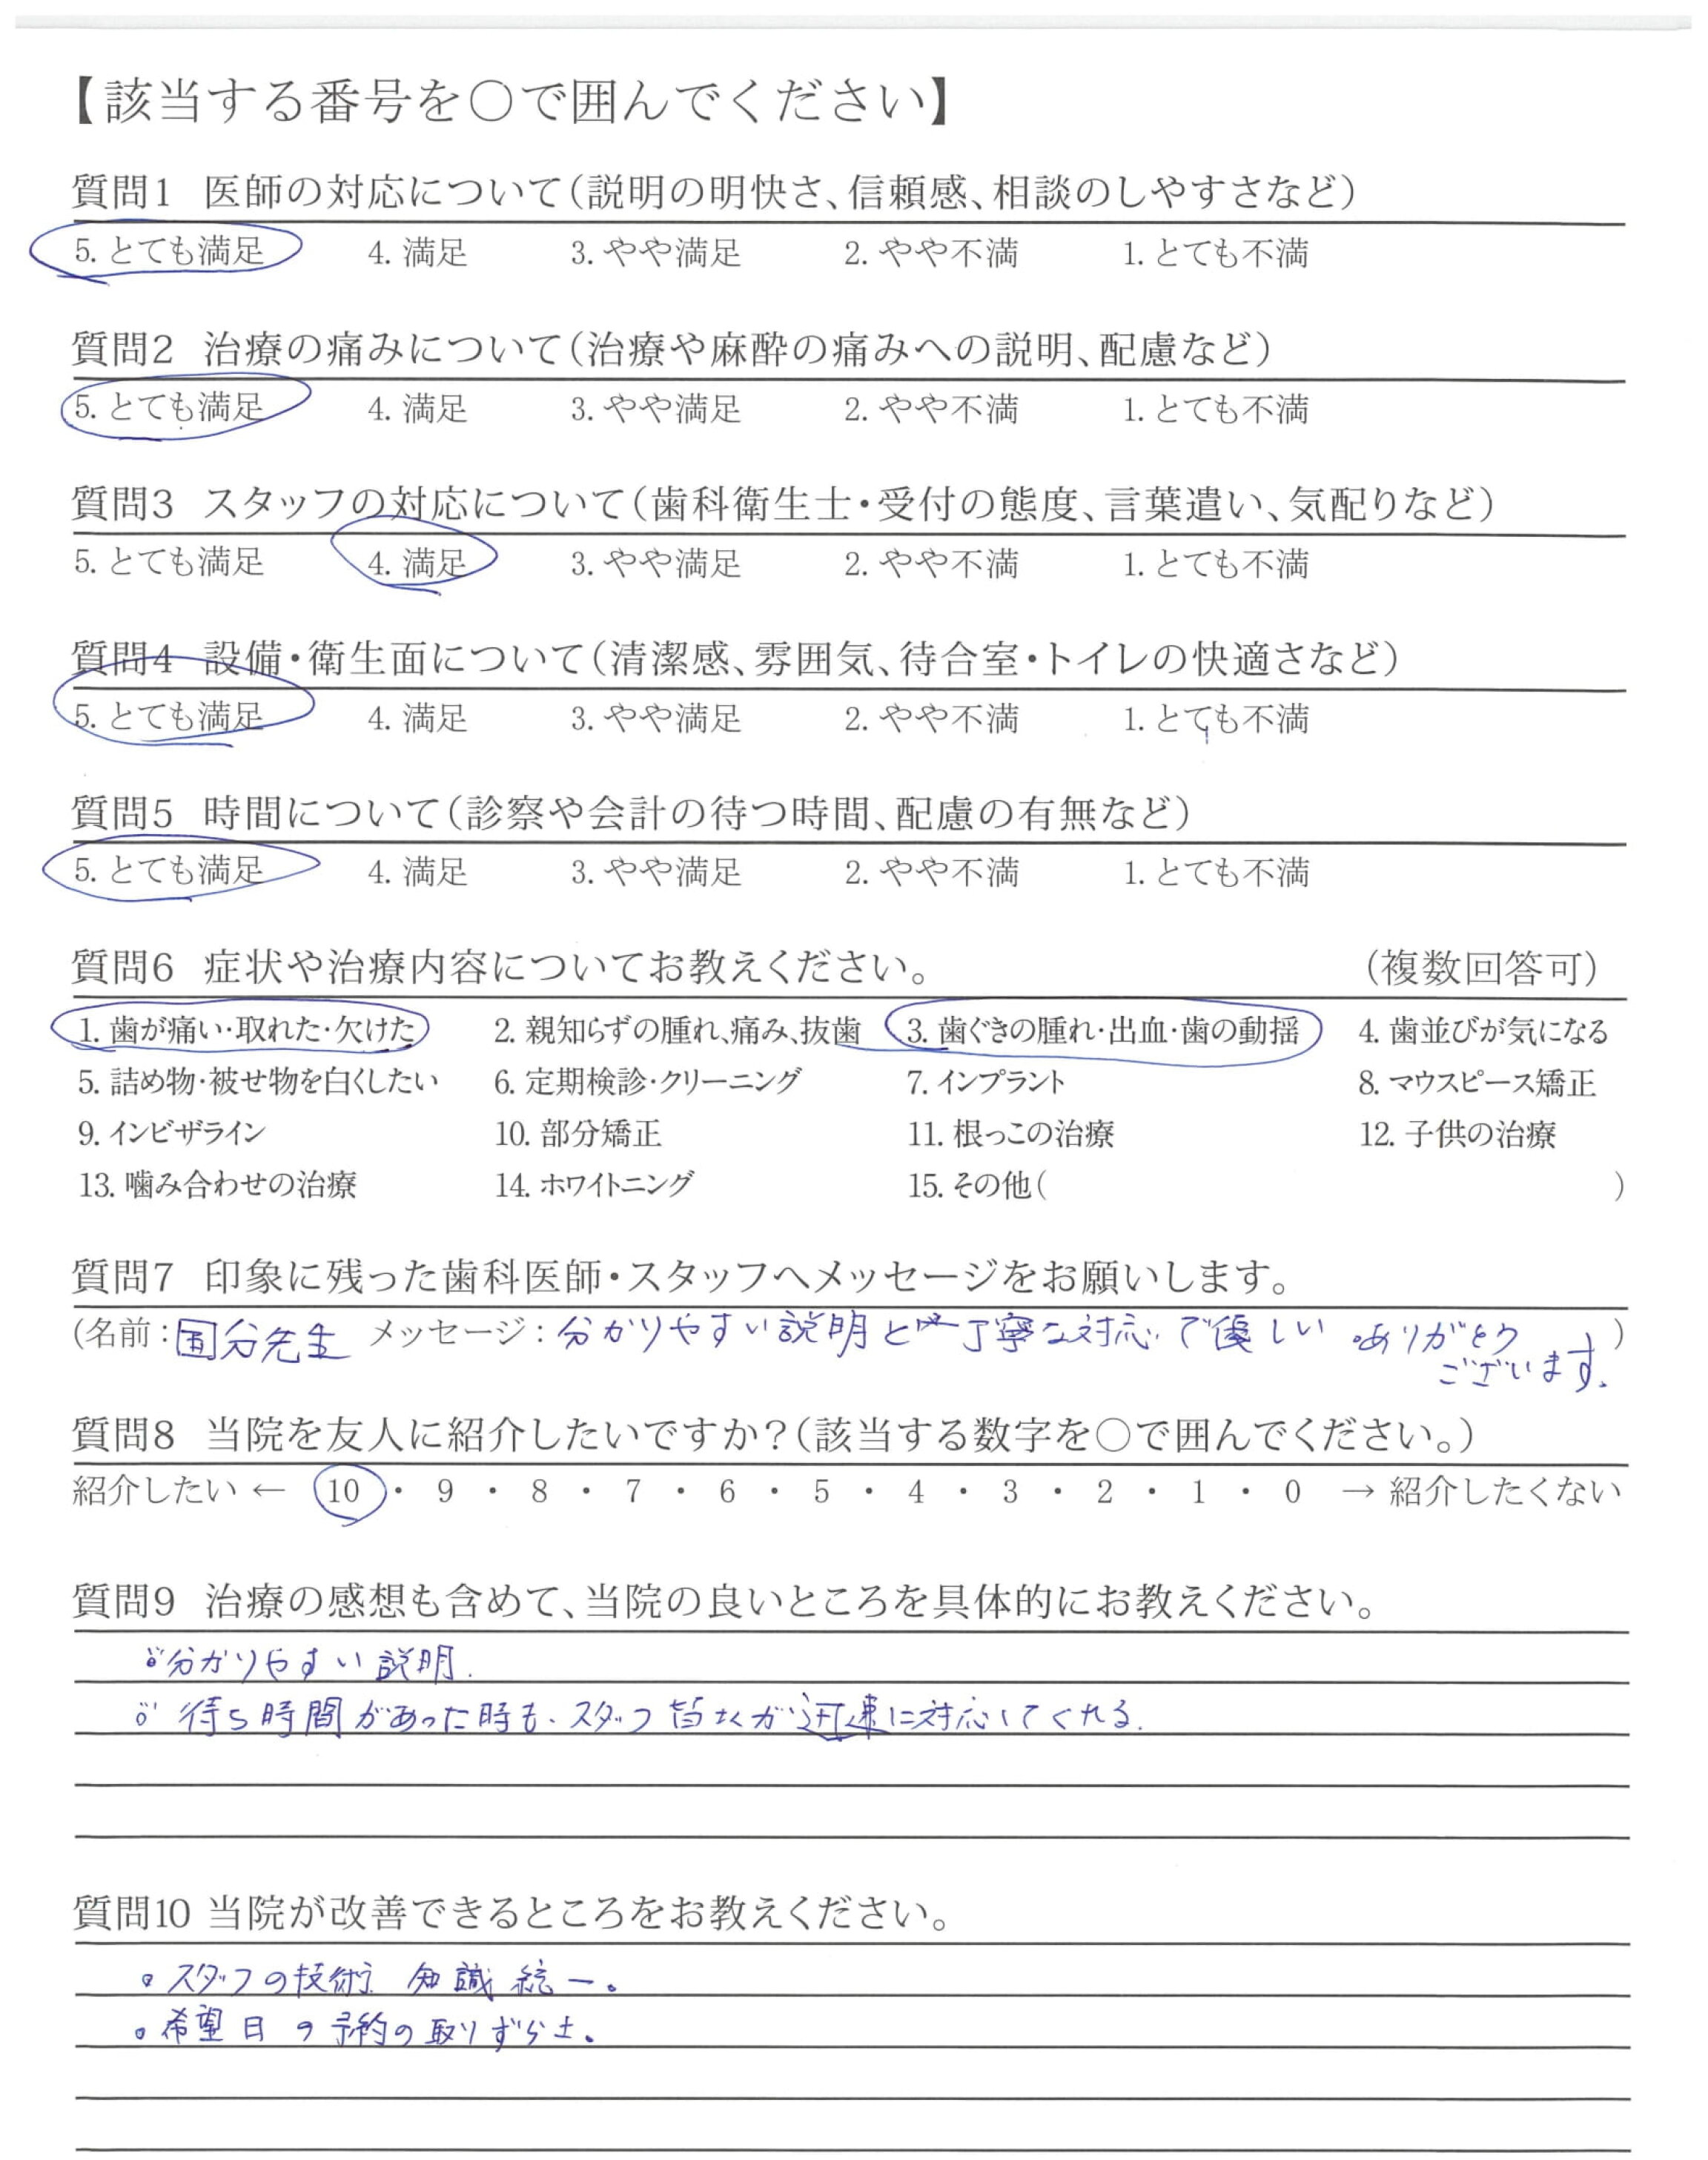 【該当する番号を○で囲んでください】
質問1 医師の対応について(説明の明快さ、信頼感、相談のしやすさなど)
5. とても満足 4. 満足 3. やや満足 2. やや不満 1. とても不満
質問2 治療の痛みについて(治療や麻酔の痛みへの説明、配慮など)
5. とても満足 4. 満足 3. やや満足 2. やや不満 1. とても不満
質問3 スタッフの対応について(歯科衛生士・受付の態度、言葉遣い、気配りなど)
5. とても満足 4. 満足 3. やや満足 2. やや不満 1. とても不満
質問4 設備・衛生面について(清潔感、雰囲気、待合室・トイレの快適さなど)
5. とても満足 4. 満足 3. やや満足 2. やや不満 1. とても不満
質問5 時間について(診察や会計の待つ時間、配慮の有無など)
5. とても満足 4. 満足 3. やや満足 2. やや不満 1. とても不満
質問6 症状や治療内容についてお教えください。 (複数回答可)
1. 歯が痛い・取れた・欠けた 2. 親知らずの腫れ、痛み、抜歯 3. 歯ぐきの腫れ・出血・歯の動揺 4. 歯並びが気になる
5. 詰め物・被せ物を白くしたい 6. 定期検診・クリーニング 7. インプラント 8. マウスピース矯正
9. インビザライン 10. 部分矯正 11. 根っこの治療 12. 子供の治療
13. 噛み合わせの治療 14. ホワイトニング 15. その他( )
質問7 印象に残った歯科医師・スタッフへメッセージをお願いします。
(名前：国分先生 メッセージ：分かりやすい説明と丁寧な対応で優しい。ありがとう )
ございます。
質問8 当院を友人に紹介したいですか？(該当する数字を○で囲んでください。)
紹介したい ← 10 ・ 9 ・ 8 ・ 7 ・ 6 ・ 5 ・ 4 ・ 3 ・ 2 ・ 1 ・ 0 → 紹介したくない
質問9 治療の感想も含めて、当院の良いところを具体的にお教えください。
。分かりやすい説明.
。待ち時間があった時も、スタッフ皆さんが迅速に対応してくれる.
質問10 当院が改善できるところをお教えください。
。スタッフの技術、知識統一。
。希望日の予約の取りずらさ。